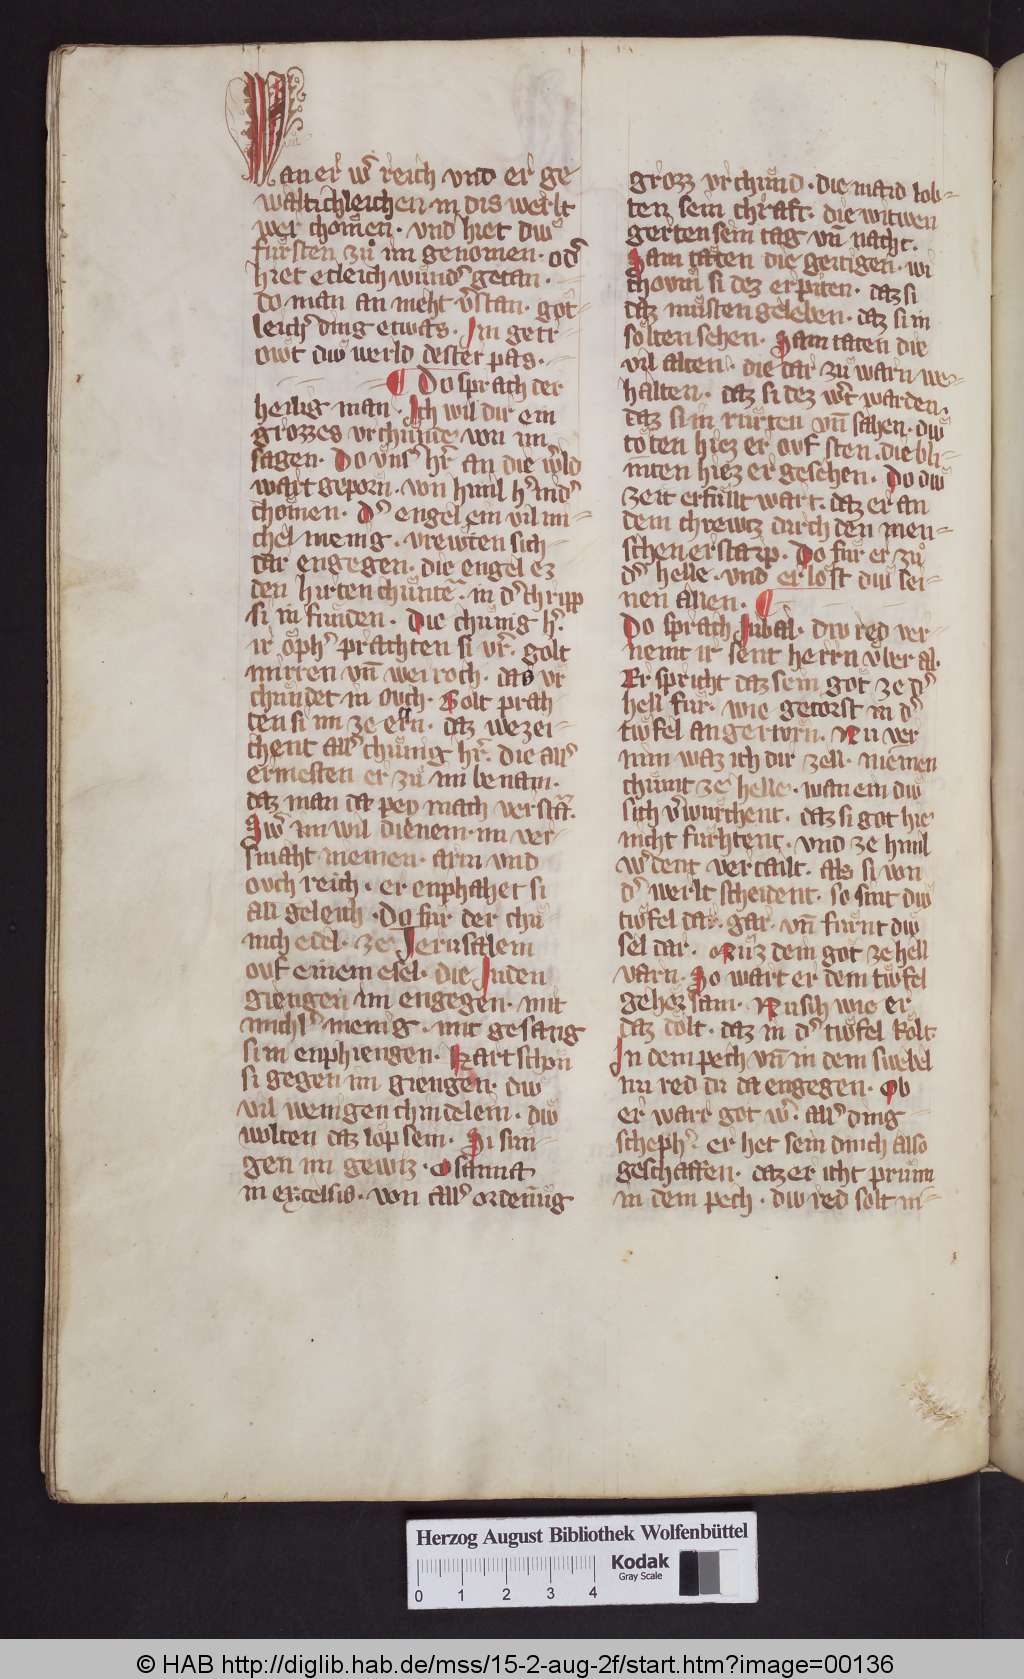 Wan er wr̄ reich vnd er ge
waltichleichen in dis werlt
wer chomen · vnd hiet diw
fürsten zuͦ im genomen · od̾
hiet etleich wund̾ getan ·
do man an meht v̾stan · got
leich̾ ding etwas · Im getr
owt diw werld dester pas ·
¶ Do sprach der
heilig man · Ich wil dir ein
grozzes vrchunde von im
sagen · Do vns̾ hr̄ an die w̾ld
wart geporn · von himl h̾ nid̾
chomen · D̾ engel ein vil mi
chel menig · vrewten sich
dar engegen · die engel ez
den hirten chunte · in d̾ chripp
si in funden · Die chunig h̾
ir oph̾ prachten si vr̄ · golt
mirren vn̄ weiroch · daz vr
chundet in ouch · Golt prah
ten si im ze ern · daz bezei
chent all̾ chunig hr̄ · die all̾
ermesten er zuͦ im benam ·
daz man da pey mach verstan
Sw̾ im wil dienem · im ver
smaht niemen · arm vnd
ouch reich · er enphahet si
all geleich · Do fur der chu
nich edel · ze Jerusalem
ouf einem esel · die Juden
giengen im engegen · mit
michl̾ menig · mit gesang
si in enphiengen · Hart schon
si gegen im giengen · diw
vil wenigen chindelein · diw
wolten daz lop sein · Si sun
gen im gewiz · Osanna
in excelsis · von all̾ ordenūg
grozz vrchund · die maid lob
ten sein chraft · die witwen
gerten sein tag vn̄ nacht ·
Sam taten die geitigen · wi
choum si dez erpiten · daz si
daz musten geleben · daz si in
solten sehen · Sam taten die
vil alten · die dar zuͦ warn be
halten · daz si dez w̾t warden ·
daz si in rurten vn̄ sahen · diw
toten hiez er ouf sten · die bli
nten hiez er gesehen · Do diw
zeit erfullt wart · daz er an
dem chrewtz durch den men
schen erstarp · Do fur er zuͦ
d̾ helle · vnd erlost diw sei
nen allen · ¶
Do sprach Jubal · diw red ver
nemt ir sent herrn vber al ·
Er spricht daz sein got ze d̾
hell fur · wie getorst in d̾
tiwfel angerurn · Nu ver
nim waz ich dir zell · niemen
chumt ze helle · wan ein diw
sich v̾wurchent · daz si got hie
nicht furhtent · vnd ze himl
w̾dent vertailt · als si von
d̾ werlt scheident · so sint diw
tiwfel dar gar · vn̄ furnt diw
sel dar · Muz dem got ze hell
varn · So wart er dem tiwfel
gehorsam · Nu sich wie er
daz dolt · daz in d̾ tiwfel kolt
In dem pech vn̄ in dem swebel
nu red du da engegen · Ob
er war got w̾ · all̾ ding
scheph̾ · er het sein dinch also
geschaffen · daz er icht prunn
in dem pech · diw red solt in
Herzog August Bibliothek Wolfenbüttel
0 1 2 3 4
Kodak
Gray Scale
© HAB http://diglib.hab.de/mss/15-2-aug-2f/start.htm?image=00136